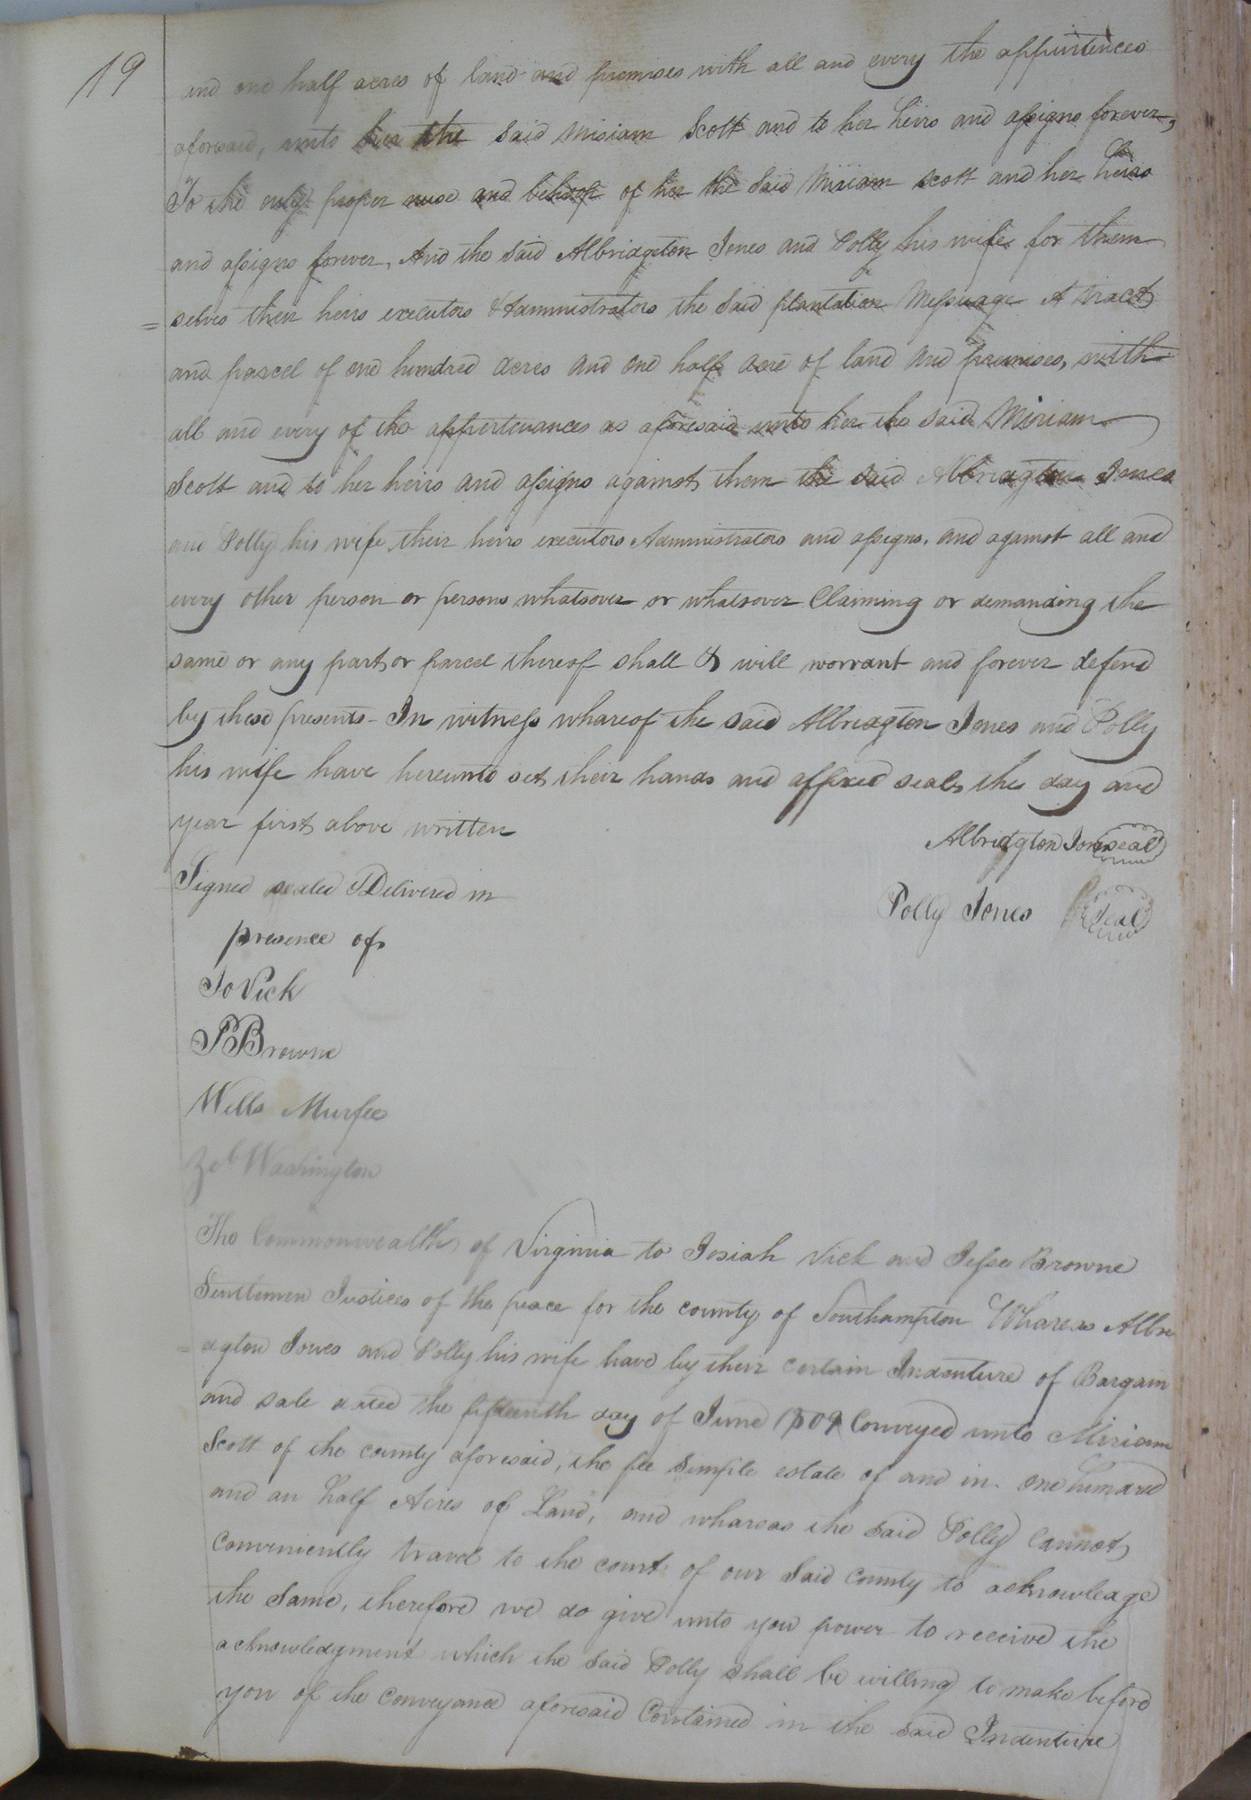 19
and one half acres of land and premises with all and every the appurtences
aforesaid, unto her the said Miriam Scott and to her heirs and assigns forever,
To the only proper nuse and behoof of her the said Miriam Scott and her heirs
and assigns forever, And the said Albridgton Jones and Polly his wife for them
= selves their heirs executors & Administrators the said plantation Messuage & tract
and parcel of one hundred acres and one half acre of land and premises, with
all and every of the appertenances as aforesaid unto her the said Miriam
Scott and to her heirs and assigns against them the said Albridgton Jones
and Polly his wife their heirs executors Administrators and assigns. and against all and
every other person or persons whatsover or whatsover Claiming or demanding the
same or any part or parcel thereof shall & will worrant and forever defend
by these presents - In witness whareof the said Albridgton Jones and Polly
his wife have hereunto set their hands and affixed seals the day and
year first above written
Albridgton Jones seal
Signed sealed & Delivered in
Polly Jones seal
presence of
Jo Vick
J Browne
Wills Murfee
Zeb Washington
The Commonwealth of Virginia to Josiah Vick and Jesse Browne
Gentlemen Justices of the peace for the county of Southampton Whareas Albri
= dgton Jones and Polly his wife have by their certain Indenture of Bargam
and sale dated the fifteenth day of June 1809 Conveyed unto Miriam
Scott of the county aforesaid, the fee simple estate of and in. one hundred
and an half Acres of Land, and whareas the said Polly Cannot
Conveniently travel to the court of our said county to acknowledge
the same, therefore we do give unto you power to receive the
acknowledgment which the said Polly shall be willing to make before
you of the Conveyance aforesaid Contained in the said Indenture